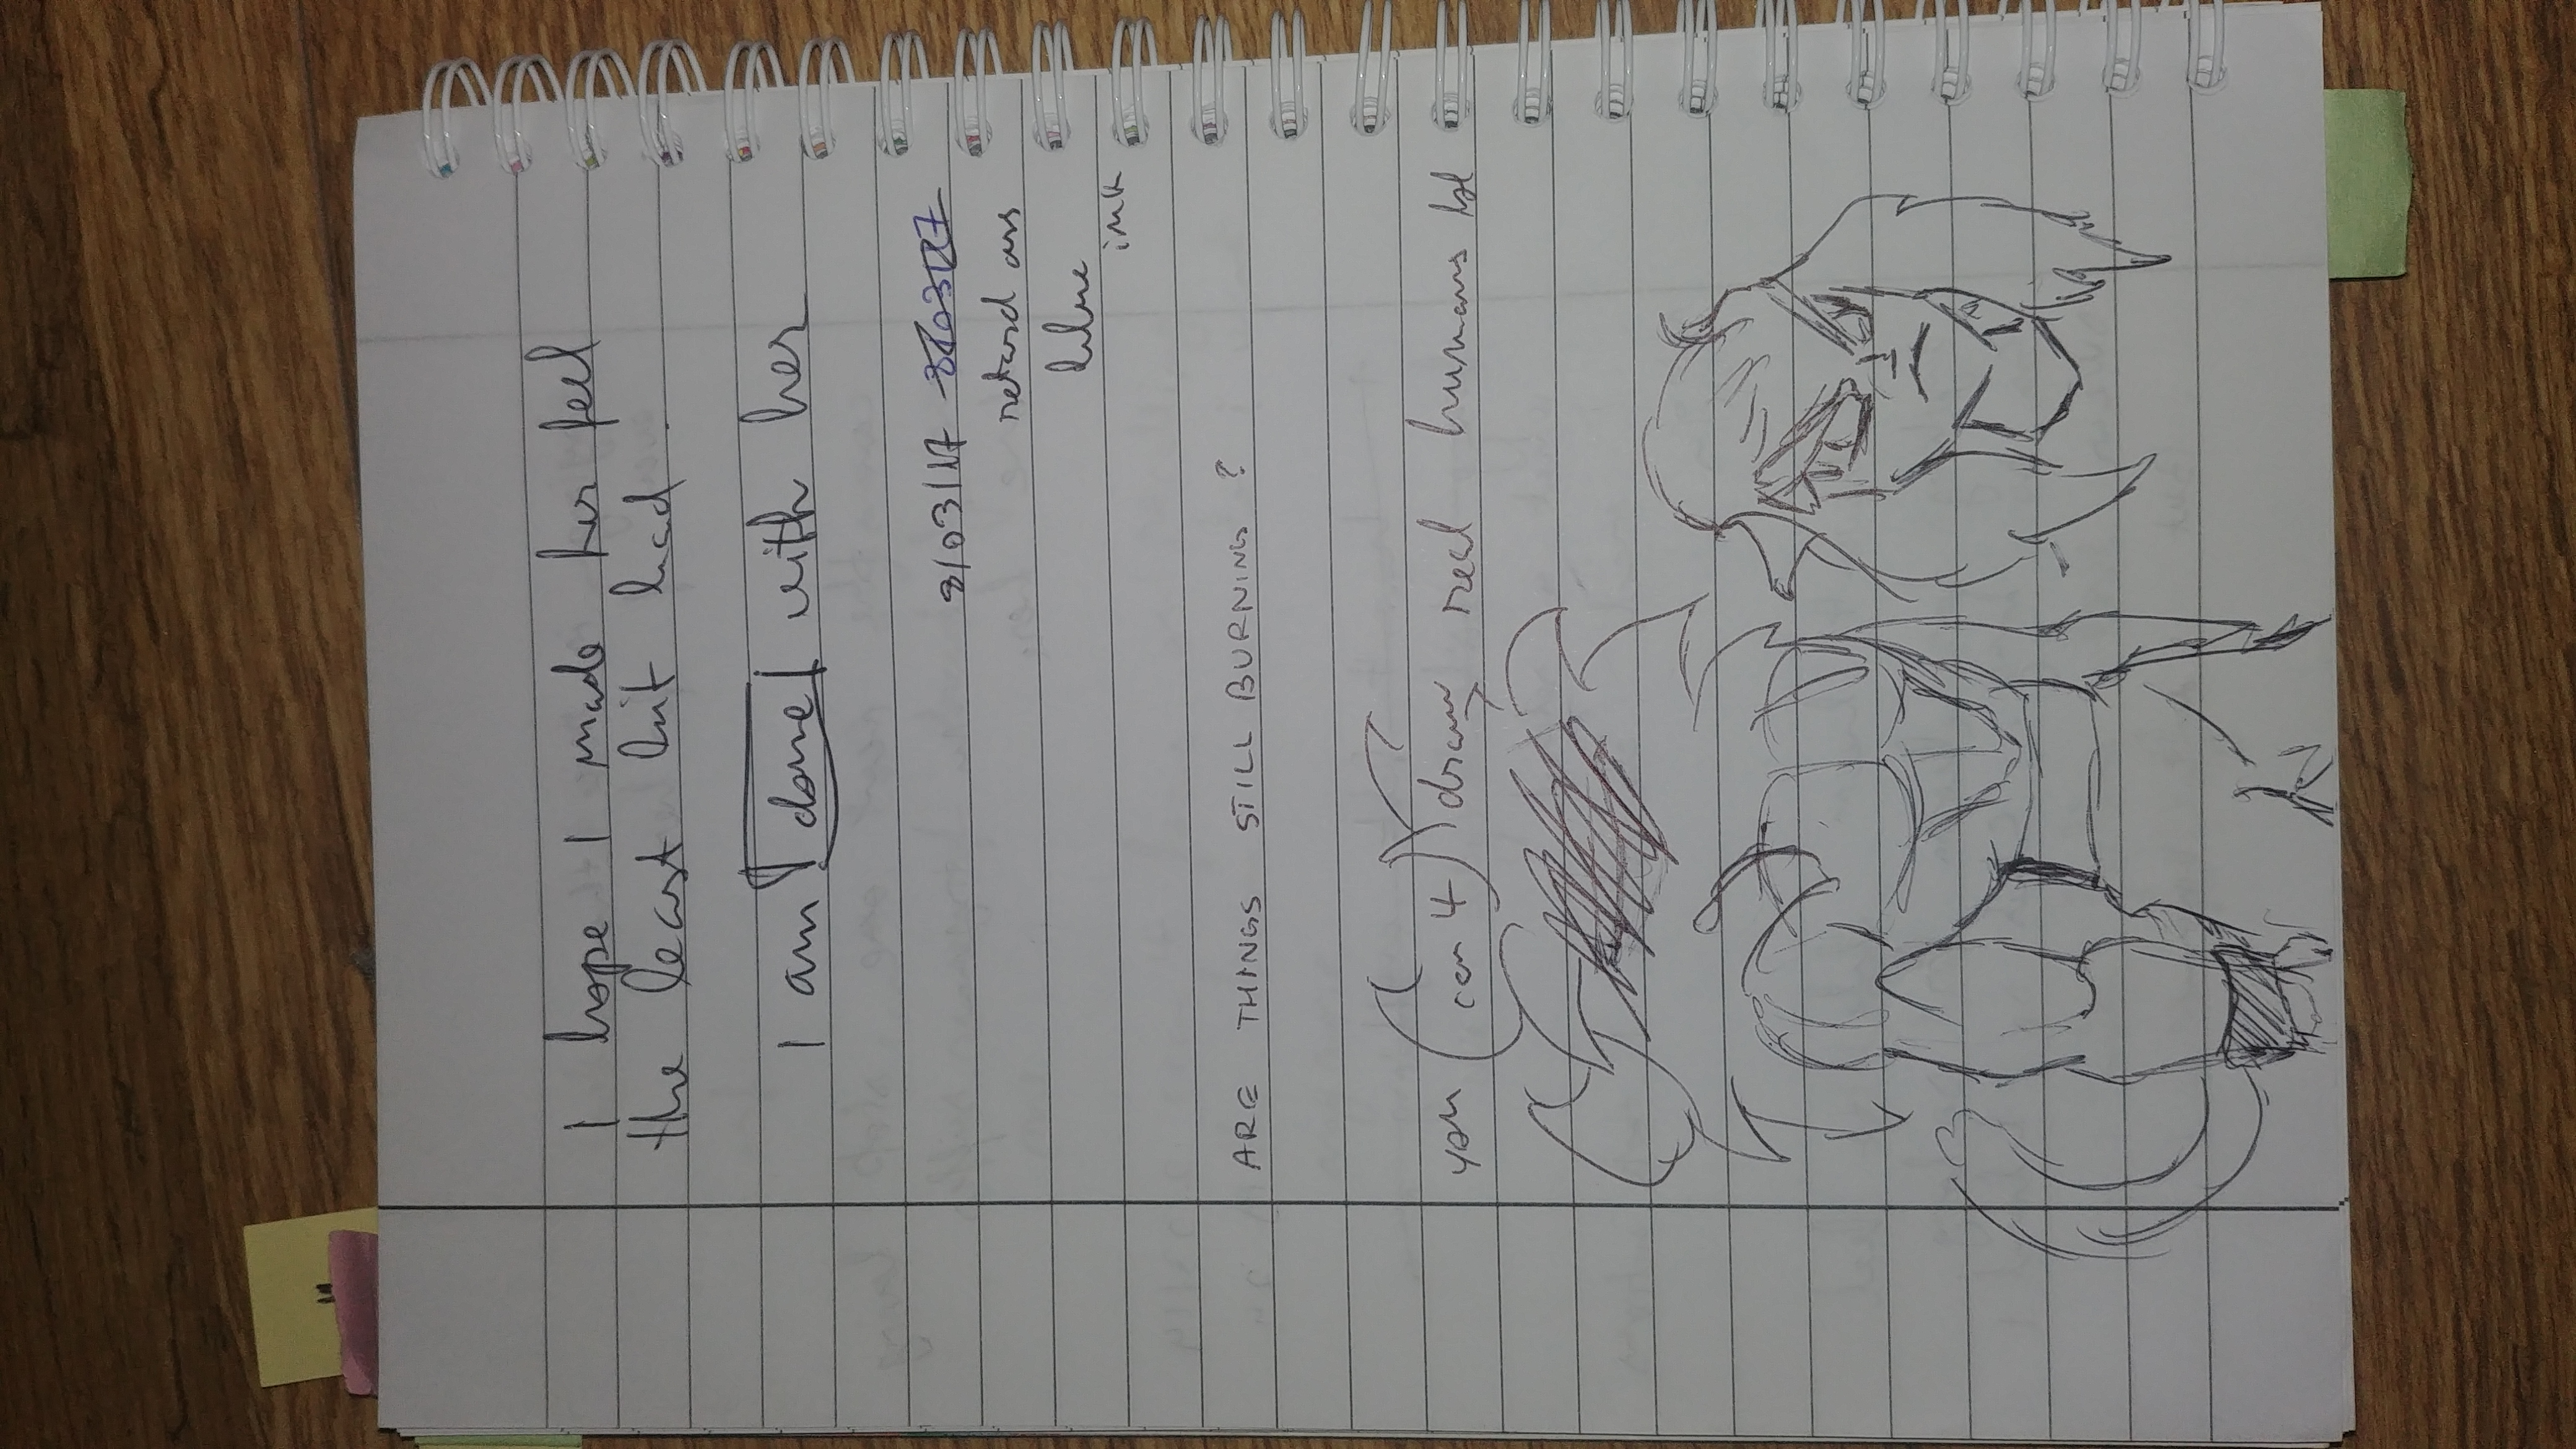 I hope I made her feel
the least bit bad.
I am done with her
8/03/17 8/03/17
retard ass
blue
ink
ARE THINGS STILL BURNING ?
you can 4 draw real humans lol